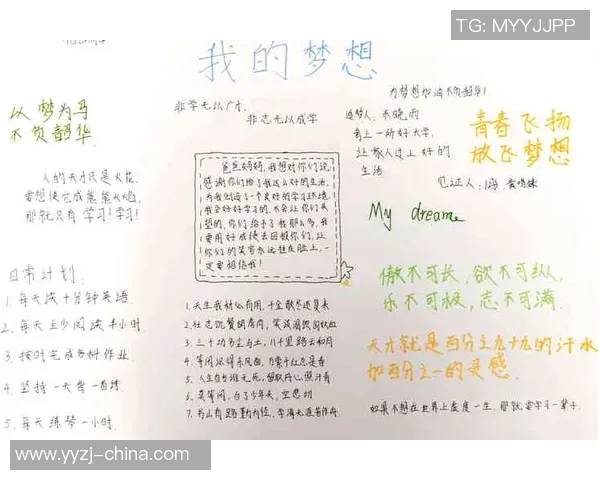 TG: MYYJJPP
我的梦想
以梦为马
不负韶华
人的天才只是火花,
要想使它成熊熊火焰,
那就只有学习!学习!
日常计划
1. 每天读十分钟英语.
2. 每天至少阅读半小时
3. 按时完成各科作业
4. 坚持一天背一首诗
5. 每天练琴一小时.
非学无以广才,
非志无以成学
爸爸妈妈,我想对你们说,
感谢你们给了我这么好的生活,
为我创造了一个良好的学习环境,
我会好好学习的,不会让你们失
望的,你们给予了我那么多,我
要用好成绩去回报你们,让
你们的笑容永远挂在脸上,一
定要相信我!
1. 天生我材必有用,千金散尽还复来
2. 壮志饥餐胡虏肉,笑谈渴饮匈奴血
3. 三十功名尘与土,八千里路云和月
4. 等闲识得东风面,万紫千红总是春
5. 人生自古谁无死,留取丹心照汗青
6. 莫等闲,白了少年头,空悲切
7. 书山有路勤为径,学海无涯苦作舟
为梦想加油不负韶华!
追梦人:
考上一所好大学,
让家人过上好的
生活
见证人:
青春飞扬
放飞梦想
My dream
傲不可长,欲不可纵,
乐不可极,志不可满.
天才就是百分之九十九的汗水
加百分之一的灵感.
如果不想在世界上虚度一生,那就要学习一辈子.
www.yyzj-china.com